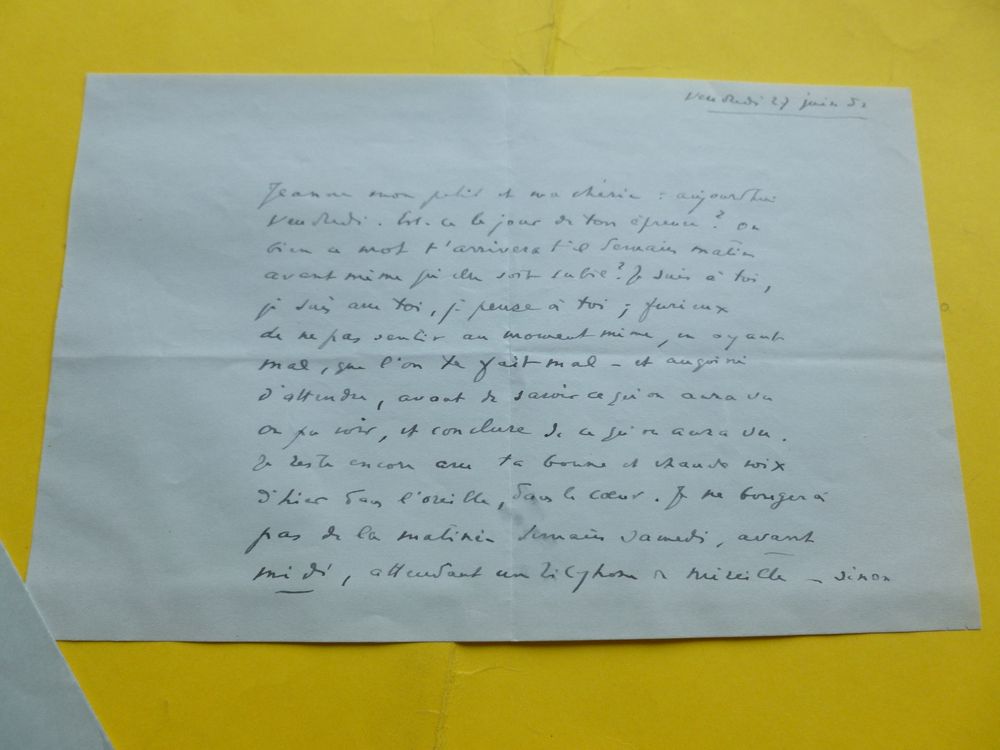 Vendredi 27 juin 52
Jeanne mon petit et ma chérie : aujourd'hui
vendredi. Est-ce le jour de ton épreuve ? Ou
bien ce mot t'arrivera t'il demain matin
avant même qu'elle soit subie ? Je suis à toi,
je suis avec toi, je pense à toi ; furieux
de ne pas sentir au moment même, en ayant
mal, que l'on te fait mal — et angoissé
d'attendre, avant de savoir ce qu'on aura vu
ou pu voir, et conclure de ce qu'on aura vu.
Je reste encore avec ta bonne et chaude voix
d'hier dans l'oreille, dans le cœur. Je ne bougerai
pas de la matinée demain samedi, avant
midi, attendant un téléphone de Mireille — sinon